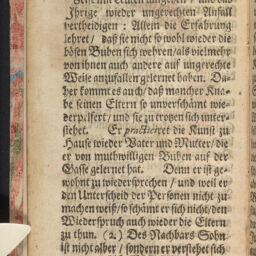 Ihrige wieder ungerechten Anfall
vertheidigen: Allein die Erfahrung
lehret / daß sie nicht so wohl wieder die
bösen Buben sich wehren / als vielmehr
von ihnen auch andere auf ungerechte
Weise anzufallen gelernet haben. Da-
her kommt es auch / daß mancher Kna-
be seinen Eltern so unverschämt wie-
derpelfert / und sie zu trotzen sich unter-
stehet. Er practiciret die Kunst zu
Hause wieder Vater und Mutter / die
er von muthwilligen Buben auf der
Gasse gelernet hat. Denn er ist ge-
wohnt zu wiedersprechen / und weil er
den Unterscheid der Personen nicht zu
machen weiß / so schämt er sich nicht / den
Wiederspruch auch wieder die Eltern
zu thun. (2.) Des Nachbars Sohn
ist nicht alber / sondern er verstehet sich